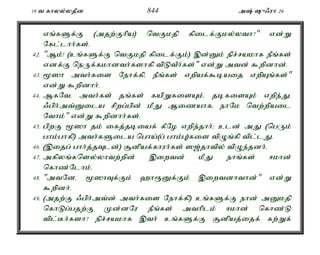 19 வ காலல்லதீன 844 அஷ் ஷுஃரா 26
எங்களுக்கு (அதற்குரிய) வெகுமதி கிடைக்குமல்லவா?" என்று
கேட்டார்கள்.
42. "ஆம்! (உங்களுக்கு வெகுமதி கிடைக்கும்) இன்னும் நிச்சயமாக நீங்கள்
எனக்கு நெருக்கமானவர்களாகி விடுவீர்கள்" என்று அவன் கூறினான்.
43. மூஸா அவர்களை நோக்கி, நீங்கள் எறியக்கூடியதை எறியுங்கள்"
என்று கூறினார்.
44. ஆகவே, அவர்கள் தங்கள் கயிறுகளையும், தடிகளையும் எறிந்து,
ஃபிர்அவ்னுடைய சிறப்பின் மீது ஆணையாக, நாமே வெற்றியடை
வோம்" என்று கூறினார்கள்.
45. பிறகு மூஸா தம் கைத்தடியைக் கீழே எறிந்தார்; உடன் அது (பெரும்
பாம்பாகி) அவர்களுடைய பொய்(ப் பாம்பு)களை விழுங்கி விட்டது.
46. (இதைப் பார்த்தவுடன்) சூனியக்காரர்கள் ஸஜ்தாவில் விழுந்தனர்.
47. அகிலங்களெல்லாவற்றின் இறைவன் மீது நாங்கள் ஈமான்
கொண்டோம்.
48. "அவனே, மூஸாவுக்கும் ஹாரூனுக்கும் இறைவனாவான்" என்று
கூறினர்.
49. (அதற்கு ஃபிர்அவ்ன் அவர்களை நோக்கி) உங்களுக்கு நான் அனுமதி
கொடுப்பதற்கு முன்னரே நீங்கள் அவரிடம் ஈமான் கொண்டு
விட்டீர்களா? நிச்சயமாக இவர் உங்களுக்கு சூனியத்தைக் கற்றுக்